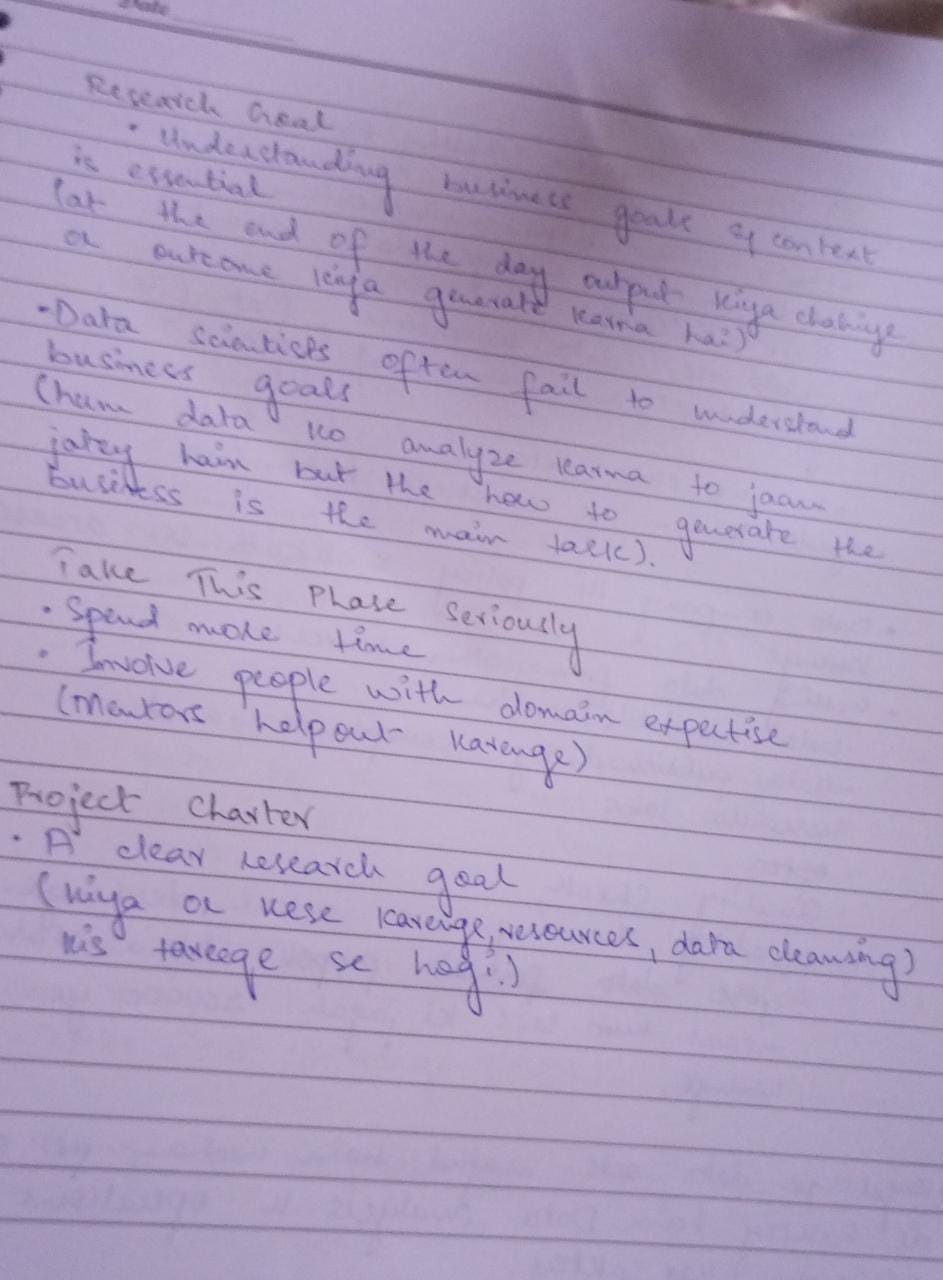 Date
Research Goal
• Understanding business goals & context
is essential
(at the end of the day output kiya chahiye
or outcome kiya generate karna hai)
• Data scientists often fail to understand
business goals
(hum data ko analyze karna to jaan
jatey hain but the how to generate the
business is the main talk).
Take This Phase Seriously
• Spend more time
• Involve people with domain expertise
(Mentors helpout karenge)
Project Charter
• A clear research goal
(kiya or kese karenge, resources, data cleansing)
kis tareeqe se hogi.)